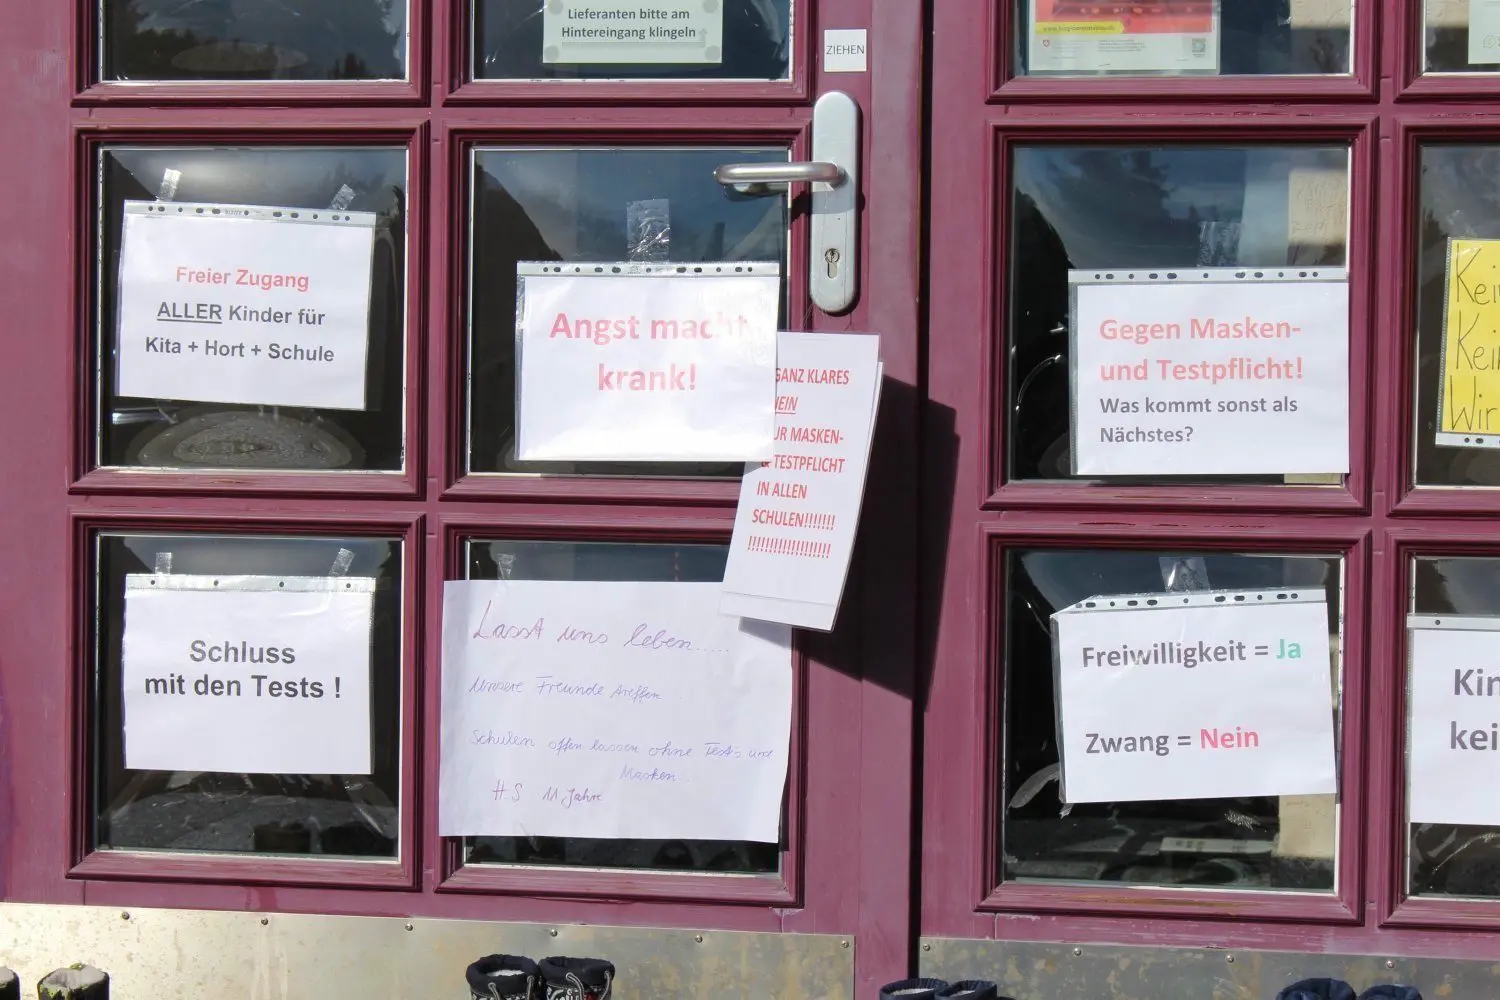 Lieferanten bitte am
Hintereingang klingeln
ZIEHEN
Freier Zugang
ALLER Kinder für
Kita + Hort + Schule
Angst macht
krank!
GANZ KLARES
NEIN
MASKEN-
& TESTPFLICHT
IN ALLEN
SCHULEN!!!!!!!
!!!!!!!!!!!!!!!!!!!
Gegen Masken-
und Testpflicht!
Was kommt sonst als
Nächstes?
Kei
Kei
Wir
Schluss
mit den Tests !
Lasst uns leben.....
Unsere Freunde treffen..
Schulen offen lassen ohne Test's und
Masken...
H.S 11 Jahre
Freiwilligkeit = Ja
Zwang = Nein
Kin
kei